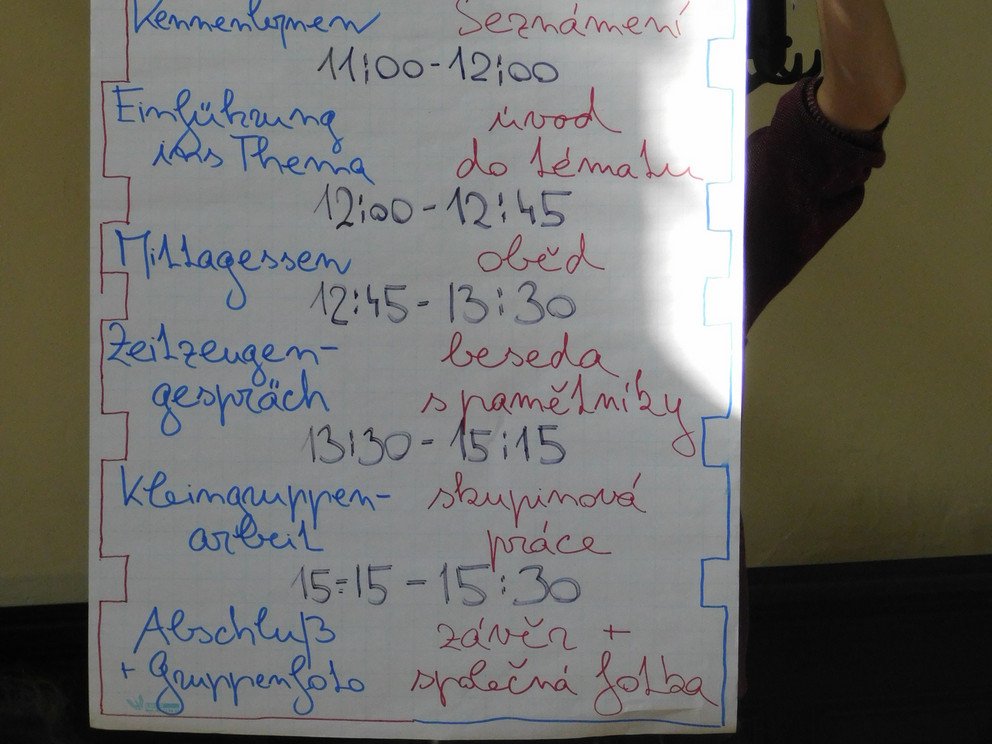 Kennenlernen Seznámení
11:00-12:00
Einführung úvod
ins Thema do tématu
12:00-12:45
Mittagessen oběd
12:45-13:30
Zeitzeugen- beseda
gespräch s pamětníky
13:30-15:15
Kleingruppen- skupinová
arbeit práce
15:15-15:30
Abschluß závěr +
+ Gruppenfoto společná fotka